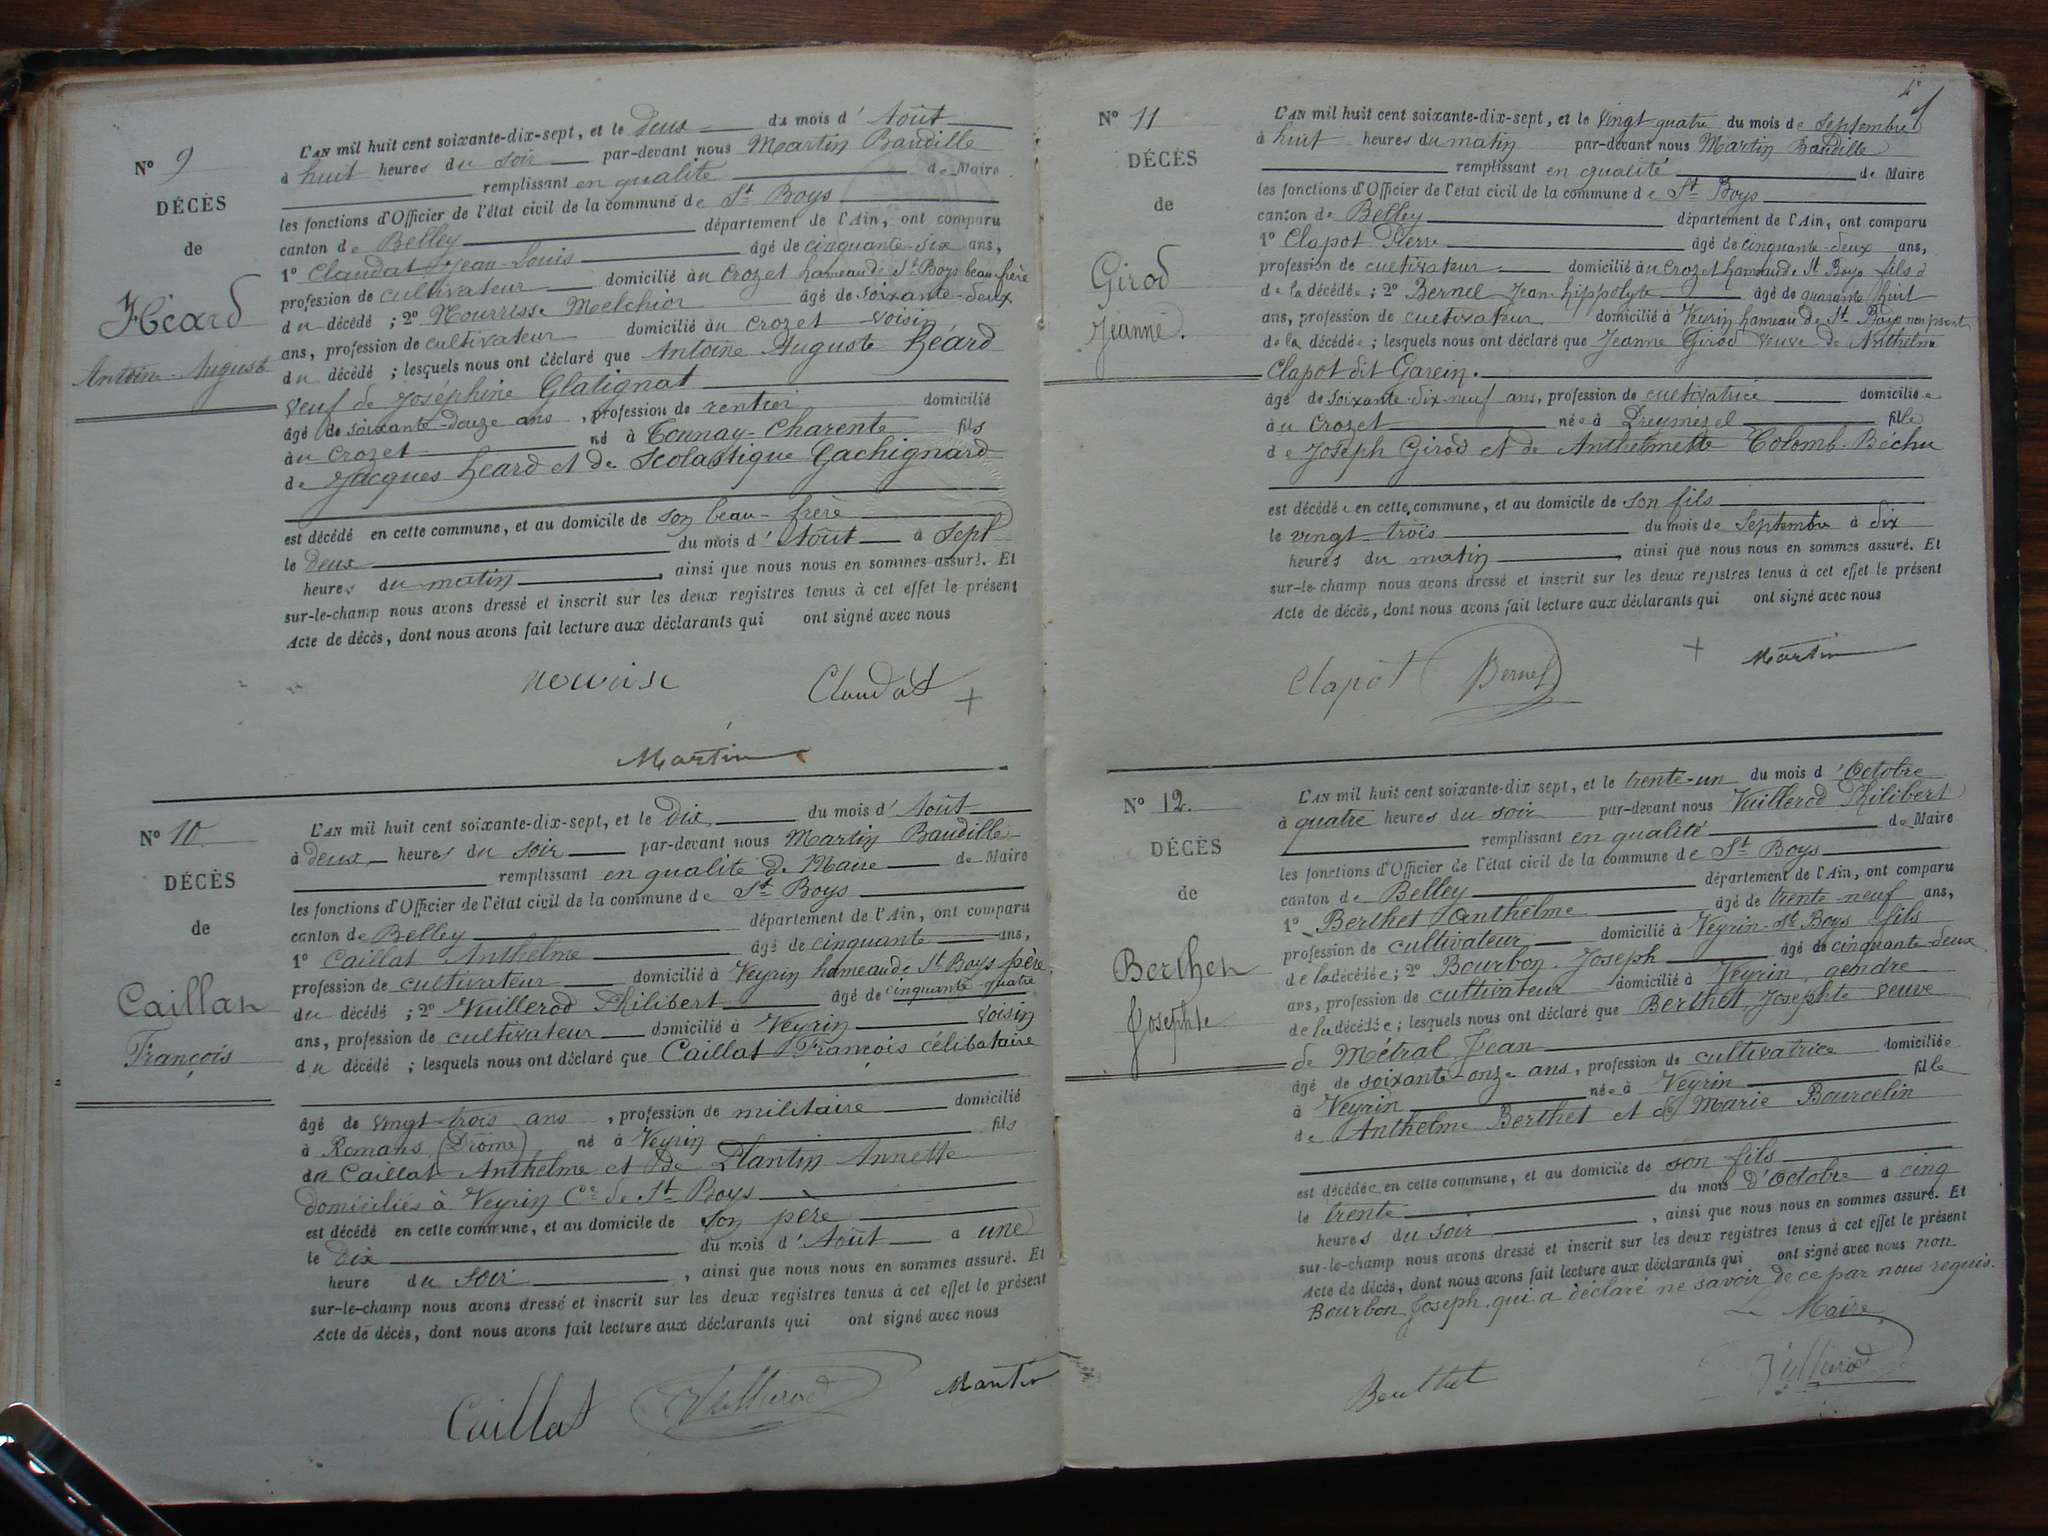 N° 9
DÉCÈS
de
Héard
Antoine Auguste
L'AN mil huit cent soixante-dix-sept, et le deux du mois d'Août
à huit heures du soir par-devant nous Martin Baudille
remplissant en qualité de Maire
les fonctions d'Officier de l'état civil de la commune de St Boys
canton de Belley département de l'Ain, ont comparu
1° Claudat Jean-Louis âgé de cinquante-six ans,
profession de cultivateur domicilié au Crozet hameau de St Boys beau-frère
du décédé ; 2° Nourrisse Melchior âgé de soixante-deux
ans, profession de cultivateur domicilié au Crozet voisin
du décédé ; lesquels nous ont déclaré que Antoine Auguste Héard
veuf de Joséphine Glatignat
âgé de soixante-douze ans, profession de rentier domicilié
au Crozet né à Tonnay-Charente fils
de Jacques Héard et de Scolastique Gachignard
est décédé en cette commune, et au domicile de son beau-frère
le deux du mois d'Août à sept
heures du matin, ainsi que nous nous en sommes assuré. Et
sur-le-champ nous avons dressé et inscrit sur les deux registres tenus à cet effet le présent
Acte de décès, dont nous avons fait lecture aux déclarants qui ont signé avec nous
Claudat
Martin
N° 10
DÉCÈS
de
Caillat
François
L'AN mil huit cent soixante-dix-sept, et le dix du mois d'Août
à deux heures du soir par-devant nous Martin Baudille
remplissant en qualité de Maire de Maire
les fonctions d'Officier de l'état civil de la commune de St Boys
canton de Belley département de l'Ain, ont comparu
1° Caillat Anthelme âgé de cinquante ans,
profession de cultivateur domicilié à Veyrin hameau de St Boys père
du décédé ; 2° Vuillerod Philibert âgé de cinquante quatre
ans, profession de cultivateur domicilié à Veyrin voisin
du décédé ; lesquels nous ont déclaré que Caillat François célibataire
âgé de vingt-trois ans, profession de militaire domicilié
à Romans (Drôme) né à Veyrin fils
de Caillat Anthelme et de Plantin Annette
domiciliés à Veyrin Cne de St Boys
est décédé en cette commune, et au domicile de son père
le dix du mois d'Août à une
heure du soir, ainsi que nous nous en sommes assuré. Et
sur-le-champ nous avons dressé et inscrit sur les deux registres tenus à cet effet le présent
Acte de décès, dont nous avons fait lecture aux déclarants qui ont signé avec nous
Caillat Vuillerod Martin
N° 11
DÉCÈS
de
Girod
Jeanne.
L'AN mil huit cent soixante-dix-sept, et le vingt quatre du mois de Septembre
à huit heures du matin par-devant nous Martin Baudille
remplissant en qualité de Maire
les fonctions d'Officier de l'état civil de la commune de St Boys
canton de Belley département de l'Ain, ont comparu
1° Clapot Pierre âgé de cinquante-deux ans,
profession de cultivateur domicilié au Crozet hameau de St Boys fils
de la décédée ; 2° Bernel Jean-hippolyte âgé de quarante huit
ans, profession de cultivateur domicilié à Veyrin hameau de St Boys non parent
de la décédée ; lesquels nous ont déclaré que Jeanne Girod veuve de Anthelme
Clapot dit Garein.
âgé de soixante-dix-neuf ans, profession de cultivatrice domiciliée
au Crozet née à Preymézel fille
de Joseph Girod et de Anthelmette Colomb-Béchu
est décédée en cette commune, et au domicile de son fils
le vingt trois du mois de Septembre à dix
heures du matin, ainsi que nous nous en sommes assuré. Et
sur-le-champ nous avons dressé et inscrit sur les deux registres tenus à cet effet le présent
Acte de décès, dont nous avons fait lecture aux déclarants qui ont signé avec nous
Clapot Bernel Martin
N° 12.
DÉCÈS
de
Berthet
Josephte
L'AN mil huit cent soixante-dix sept, et le trente-un du mois d'Octobre
à quatre heures du soir par-devant nous Vuillerod Philibert
remplissant en qualité de Maire
les fonctions d'Officier de l'état civil de la commune de St Boys
canton de Belley département de l'Ain, ont comparu
1° Berthet Anthelme âgé de trente-neuf ans,
profession de cultivateur domicilié à Veyrin-St Boys fils
de la décédée ; 2° Bourbon Joseph âgé de cinquante-deux
ans, profession de cultivateur domicilié à Veyrin gendre
de la décédée ; lesquels nous ont déclaré que Berthet Joséphte veuve
de Métral Jean
âgé de soixante-onze ans, profession de cultivatrice domiciliée
à Veyrin née à Veyrin fille
de Anthelme Berthet et de Marie Bourcelin
est décédée en cette commune, et au domicile de son fils
le trente du mois d'Octobre à cinq
heures du soir, ainsi que nous nous en sommes assuré. Et
sur-le-champ nous avons dressé et inscrit sur les deux registres tenus à cet effet le présent
Acte de décès, dont nous avons fait lecture aux déclarants qui ont signé avec nous non
Bourbon Joseph qui a déclaré ne savoir de ce par nous requis.
Le Maire
Berthet Vuillerod